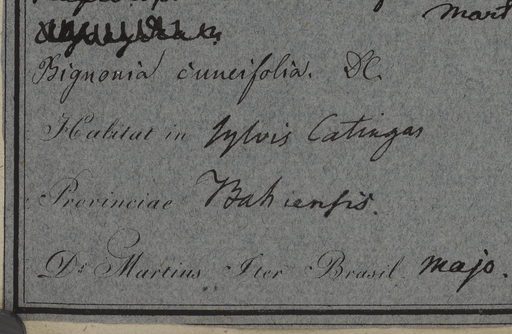 Mart
Bignonia cuneifolia. DC.
Habitat in sylvis Catingas
Provinciae Bahiensis.
Dr. Martius Iter Brasil. Majo.